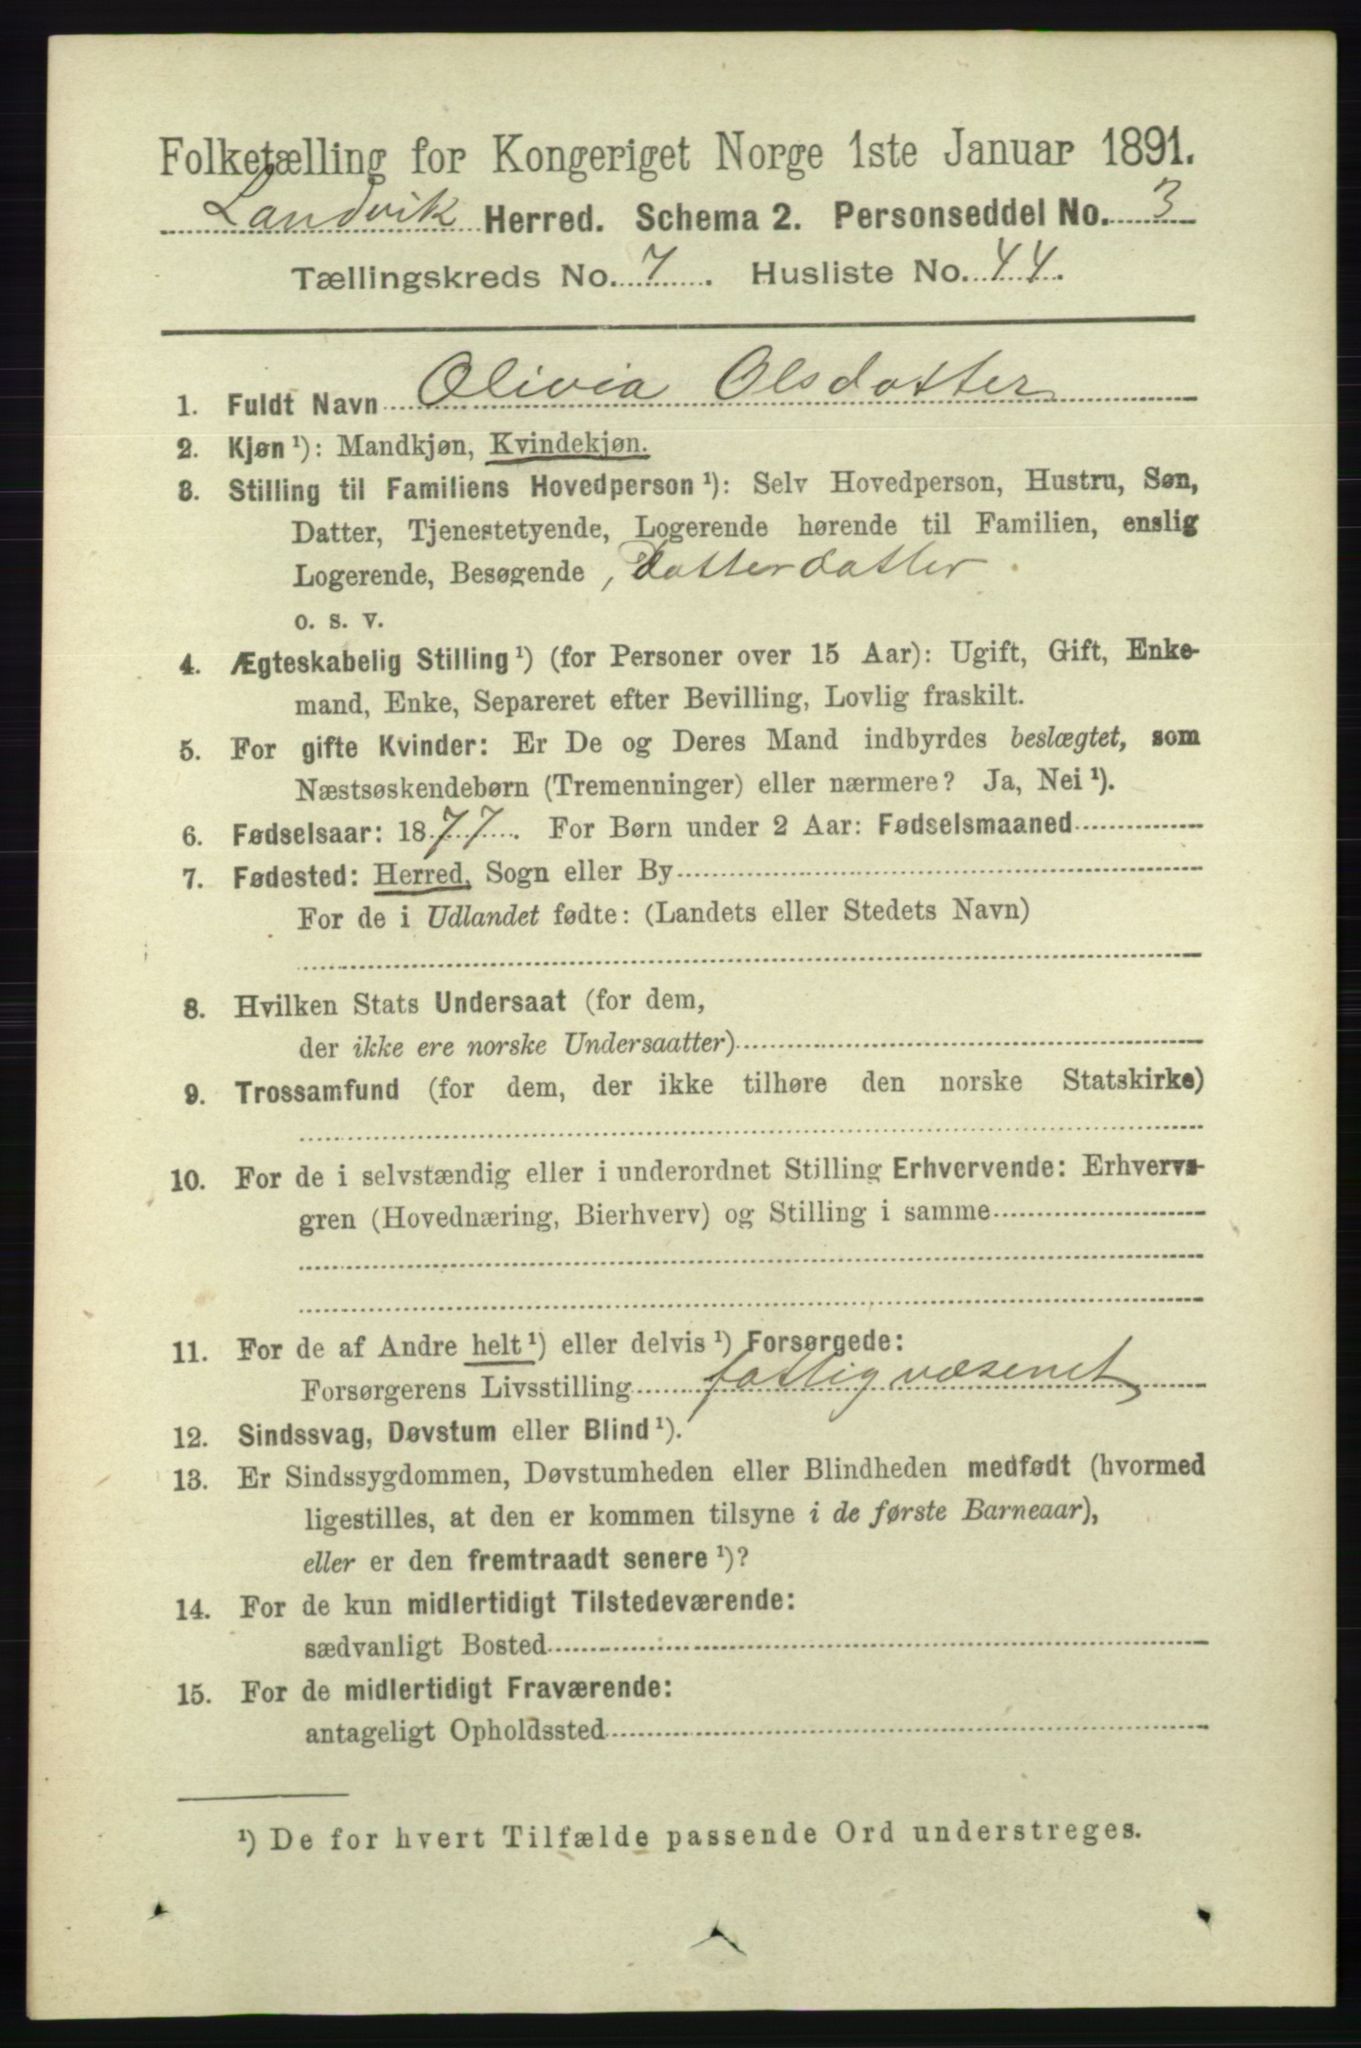 Folketælling for Kongeriget Norge 1ste Januar 1891.
Landvik Herred. Schema 2. Personseddel No. 3
Tællingskreds No. 7. Husliste No. 44.
1. Fuldt Navn Olivia Olsdatter
2. Kjøn¹): Mandkjøn, Kvindekjøn.
3. Stilling til Familiens Hovedperson¹): Selv Hovedperson, Hustru, Søn,
Datter, Tjenestetyende, Logerende hørende til Familien, enslig
Logerende, Besøgende, Datterdatter.
o. s. v.
4. Ægteskabelig Stilling¹) (for Personer over 15 Aar): Ugift, Gift, Enke-
mand, Enke, Separeret efter Bevilling, Lovlig fraskilt.
5. For gifte Kvinder: Er De og Deres Mand indbyrdes beslægtet, som
Næstsøskendebørn (Tremenninger) eller nærmere? Ja, Nei¹).
6. Fødselsaar: 1877. For Børn under 2 Aar: Fødselsmaaned
7. Fødested: Herred, Sogn eller By
For de i Udlandet fødte: (Landets eller Stedets Navn)
8. Hvilken Stats Undersaat (for dem,
der ikke ere norske Undersaatter)
9. Trossamfund (for dem, der ikke tilhøre den norske Statskirke)
10. For de i selvstændig eller i underordnet Stilling Erhvervende: Erhvervs-
gren (Hovednæring, Bierhverv) og Stilling i samme
11. For de af Andre helt¹) eller delvis¹) Forsørgede:
Forsørgerens Livsstilling fattigvæsenet
12. Sindssvag, Døvstum eller Blind¹).
13. Er Sindssygdommen, Døvstumheden eller Blindheden medfødt (hvormed
ligestilles, at den er kommen tilsyne i de første Barneaar),
eller er den fremtraadt senere¹)?
14. For de kun midlertidigt Tilstedeværende:
sædvanligt Bosted
15. For de midlertidigt Fraværende:
antageligt Opholdssted
¹) De for hvert Tilfælde passende Ord understreges.